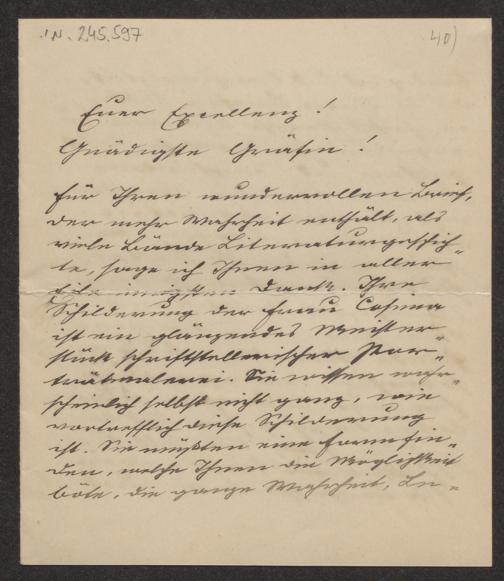 I.N. 245.597
40)
Euer Excellenz!
Gnädigste Gräfin!
Für Ihren wundervollen Brief,
der mehr Wahrheit enthält, als
viele Bände Literaturgeschich-
te, sage ich Ihnen in aller
Eile innigsten Dank. Ihre
Schilderung der Frau Cosima
ist ein glänzendes Meister-
stück schriftstellerischer Por-
trätmalerei. Sie wissen wahr-
scheinlich selbst nicht ganz, wie
vortrefflich diese Schilderung
ist. Sie müßten eine Form fin-
den, welche Ihnen die Möglichkeit
böte, die ganze Wahrheit,